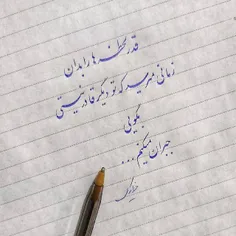 قدر لحظه ها را بدان
زمانی میرسد که تو دیگر قادر نیستی
بگویی
جبران میکنم...